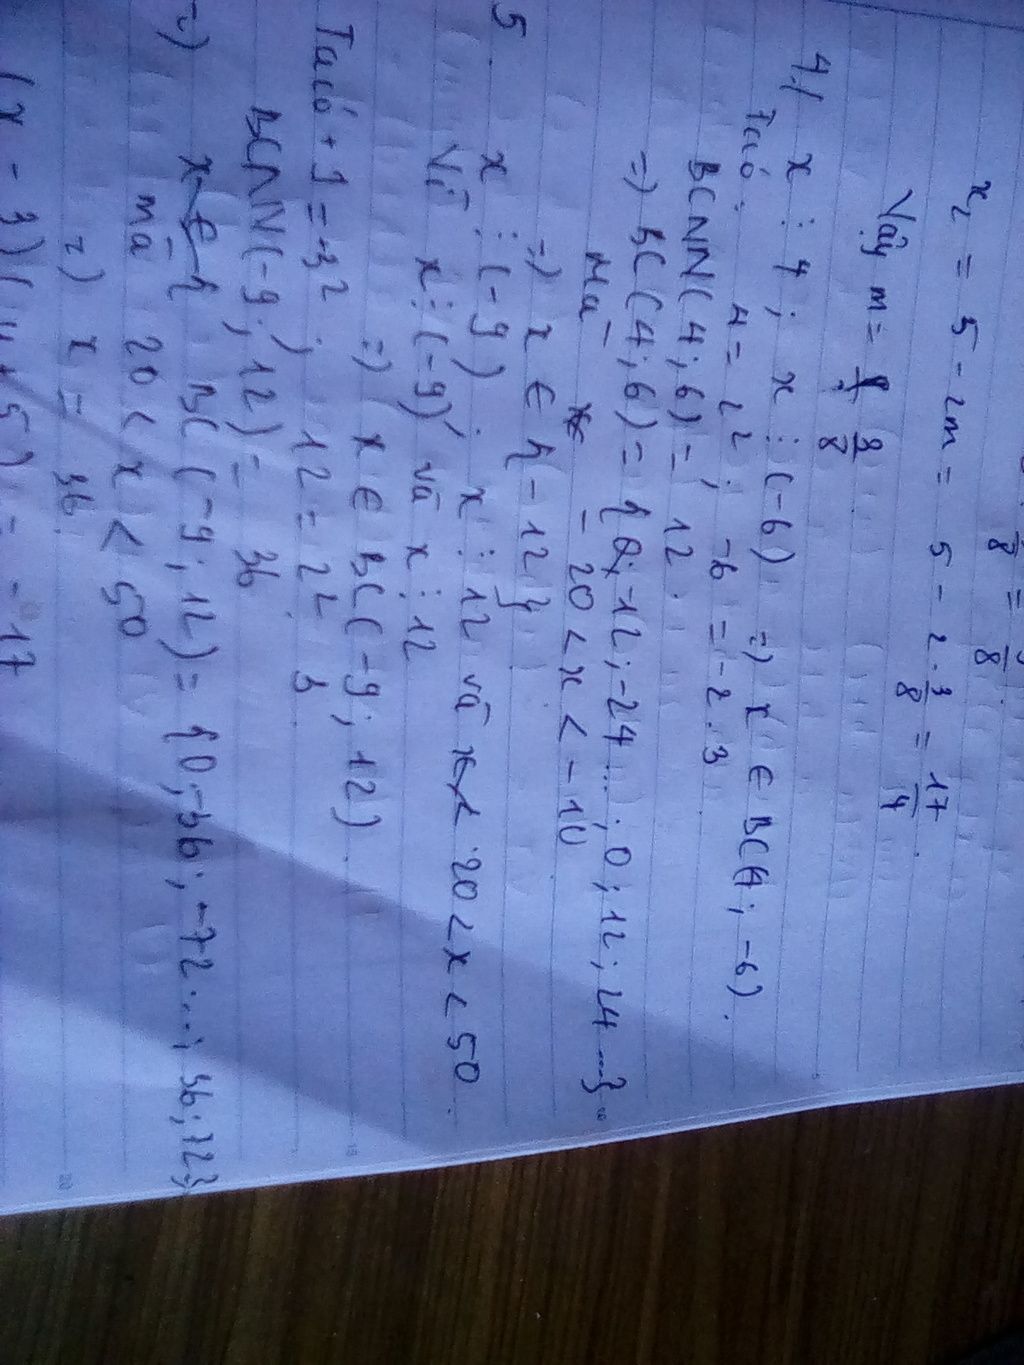 x₂ = 5 - 2m = 5 - 2 · 3/8 = 17/4
Vậy m = 3/8
4/ x ⋮ 4 ; x ⋮ (-6) => x ∈ BC(4 ; -6).
Ta có: 4 = 2² ; -6 = -2 . 3
BCNN(4 ; 6) = 12.
=> BC(4 ; 6) = {0; -12 ; -24 ... ; 0 ; 12 ; 24 ...}.
Mà - 20 < x < -10
=> x ∈ {-12}
5 x ⋮ (-9) ; x ⋮ 12 và 20 < x < 50.
Vì x ⋮ (-9) và x ⋮ 12
=> x ∈ BC(-9 ; 12).
Ta có + 9 = 3² ; 12 = 2² 3
BCNN(-9 ; 12) = 36.
BC(-9 ; 12) = {0 ; -36 ; -72 ... ; 36 ; 72}
mà 20 < x < 50
=> x = 36.
(x - 3)( + 5) = -17